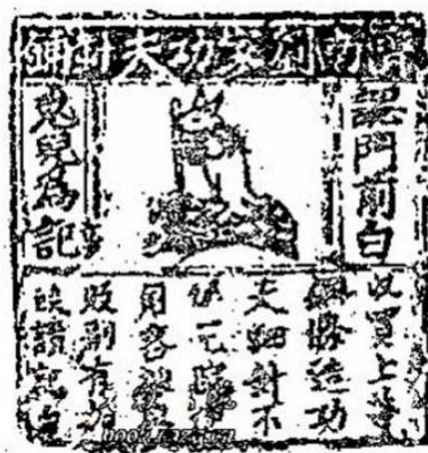 濟南劉家功夫針鋪
認門前白
兔兒為記
收買上等
鋼條造功
夫細針不
用客
販別有加
饒請記白